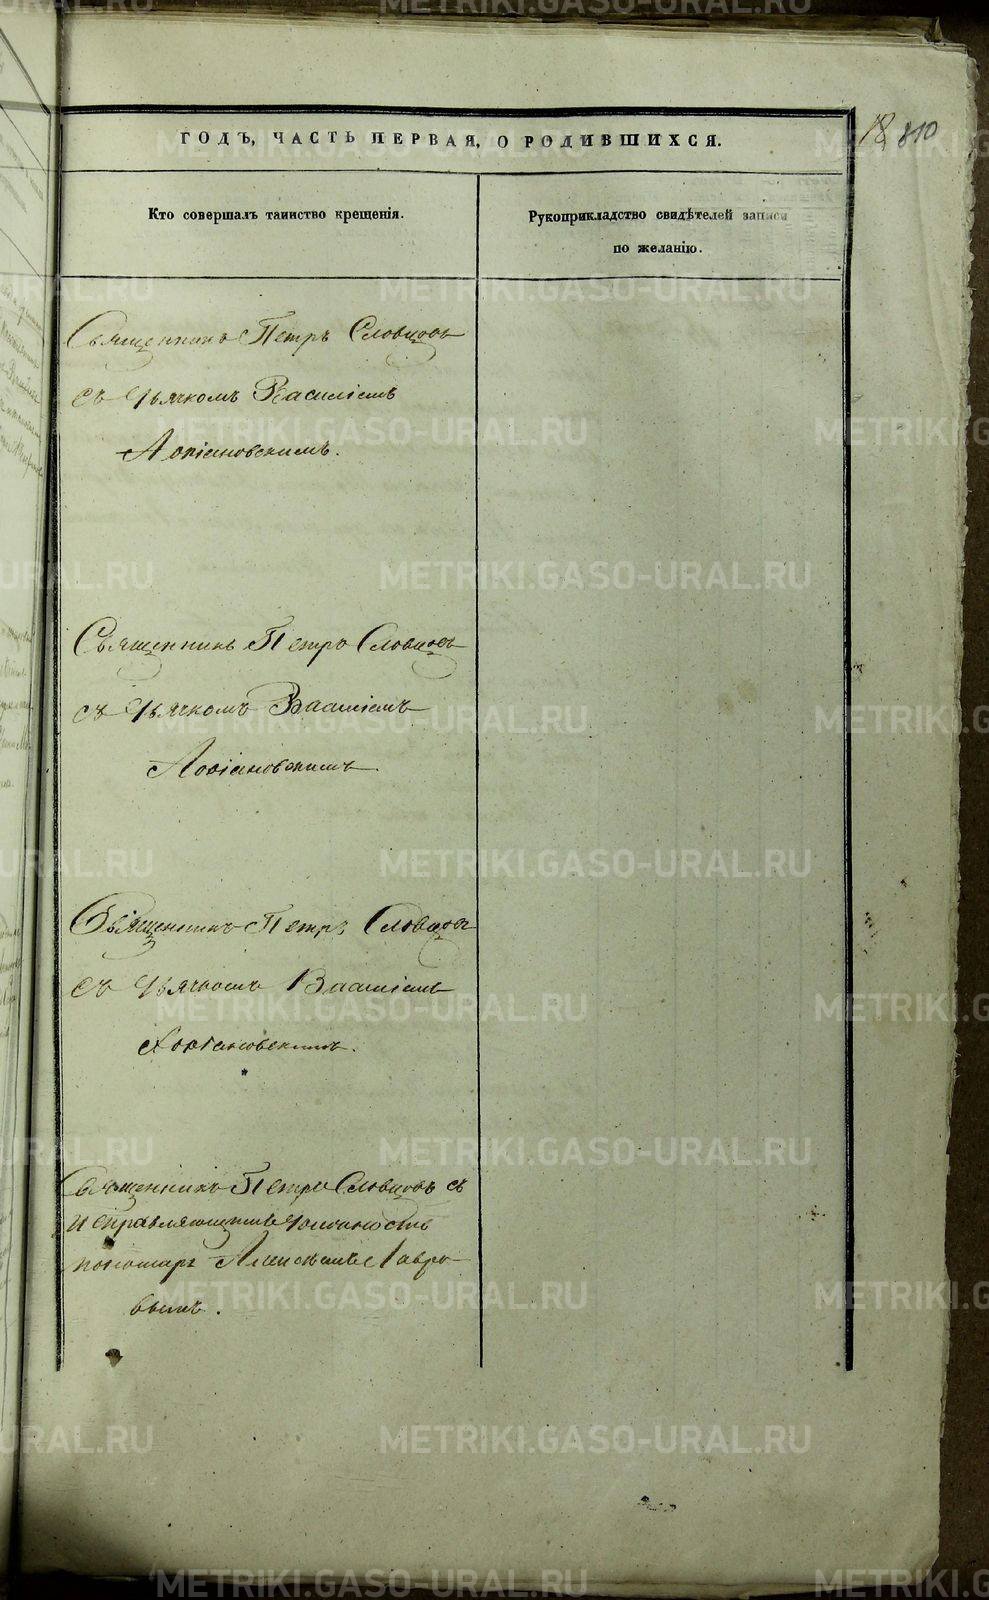 ГОДЪ, ЧАСТЬ ПЕРВАЯ, О РОДИВШИХСЯ.
18 810
Кто совершалъ таинство крещенія.
Рукоприкладство свидѣтелей записи
по желанію.
Священникъ Петръ Словцовъ
съ дьячкомъ Василіемъ
Священникъ Петръ Словцовъ
съ дьячкомъ Василіемъ
Священникъ Петръ Словцовъ
съ дьячкомъ Василіемъ
Священникъ Петръ Словцовъ съ
исправляющимъ должность
пономаря Алексѣемъ Лавро-
вымъ.
METRIKI.GASO-URAL.RU